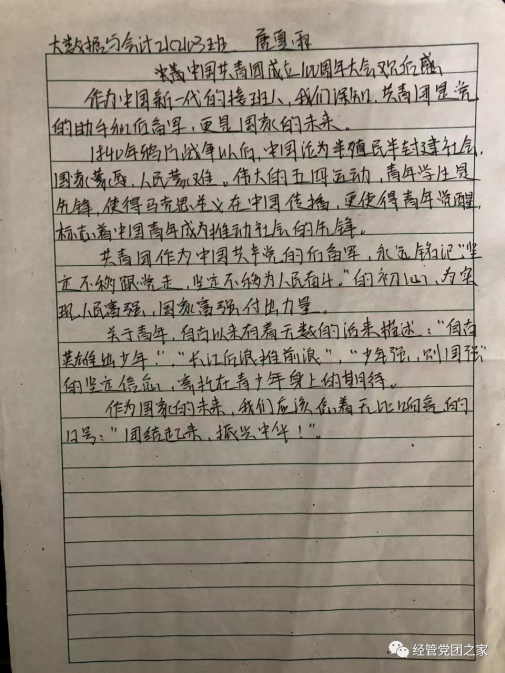 大数据与会计210203班 唐夏雨
中国共青团成立100周年大会观后感
作为中国新一代的接班人,我们深知,共青团是党
的助手和后备军,更是国家的未来。
1840年鸦片战争以后,中国沦为半殖民半封建社会,
国家蒙辱,人民蒙难。伟大的五四运动,青年学生是
先锋,使得马克思主义在中国传播,更使得青年觉醒,
标志着中国青年成为推动社会的先锋。
共青团作为中国共产党的后备军,永远铭记"坚
定不移跟党走,坚定不移为人民奋斗。"的初心,为实
现人民富强,国家富强付出力量。
关于青年,自古以来有着无数的 描述:"自古
英雄出少年!","长江后浪推前浪","少年强,则国强"
的坚定信念,寄托在青少年身上的期待。
作为国家的未来,我们应该 着无比响亮的
口号:"团结起来,振兴中华!"。
经管党团之家